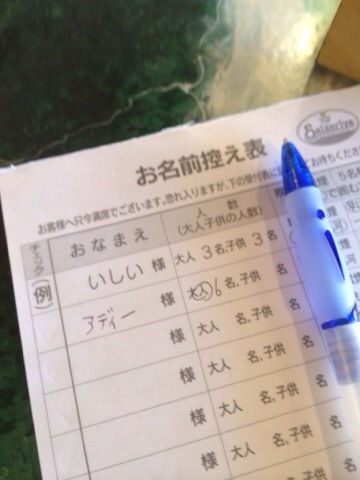 Saizeriya
お名前控え表
お客様へ只今満席でございます。恐れ入りますが、下の受付表に
お待ちくださ
チェック
おなまえ
人数
(大人子供の人数)
(例)
いしい 様 大人 3名,子供 3名
アディー 様 大人 6名,子供 名
様 大人 名,子供 名
様 大人 名,子供 名
様 大人 名,子供 名
様 大人 名,子供 名